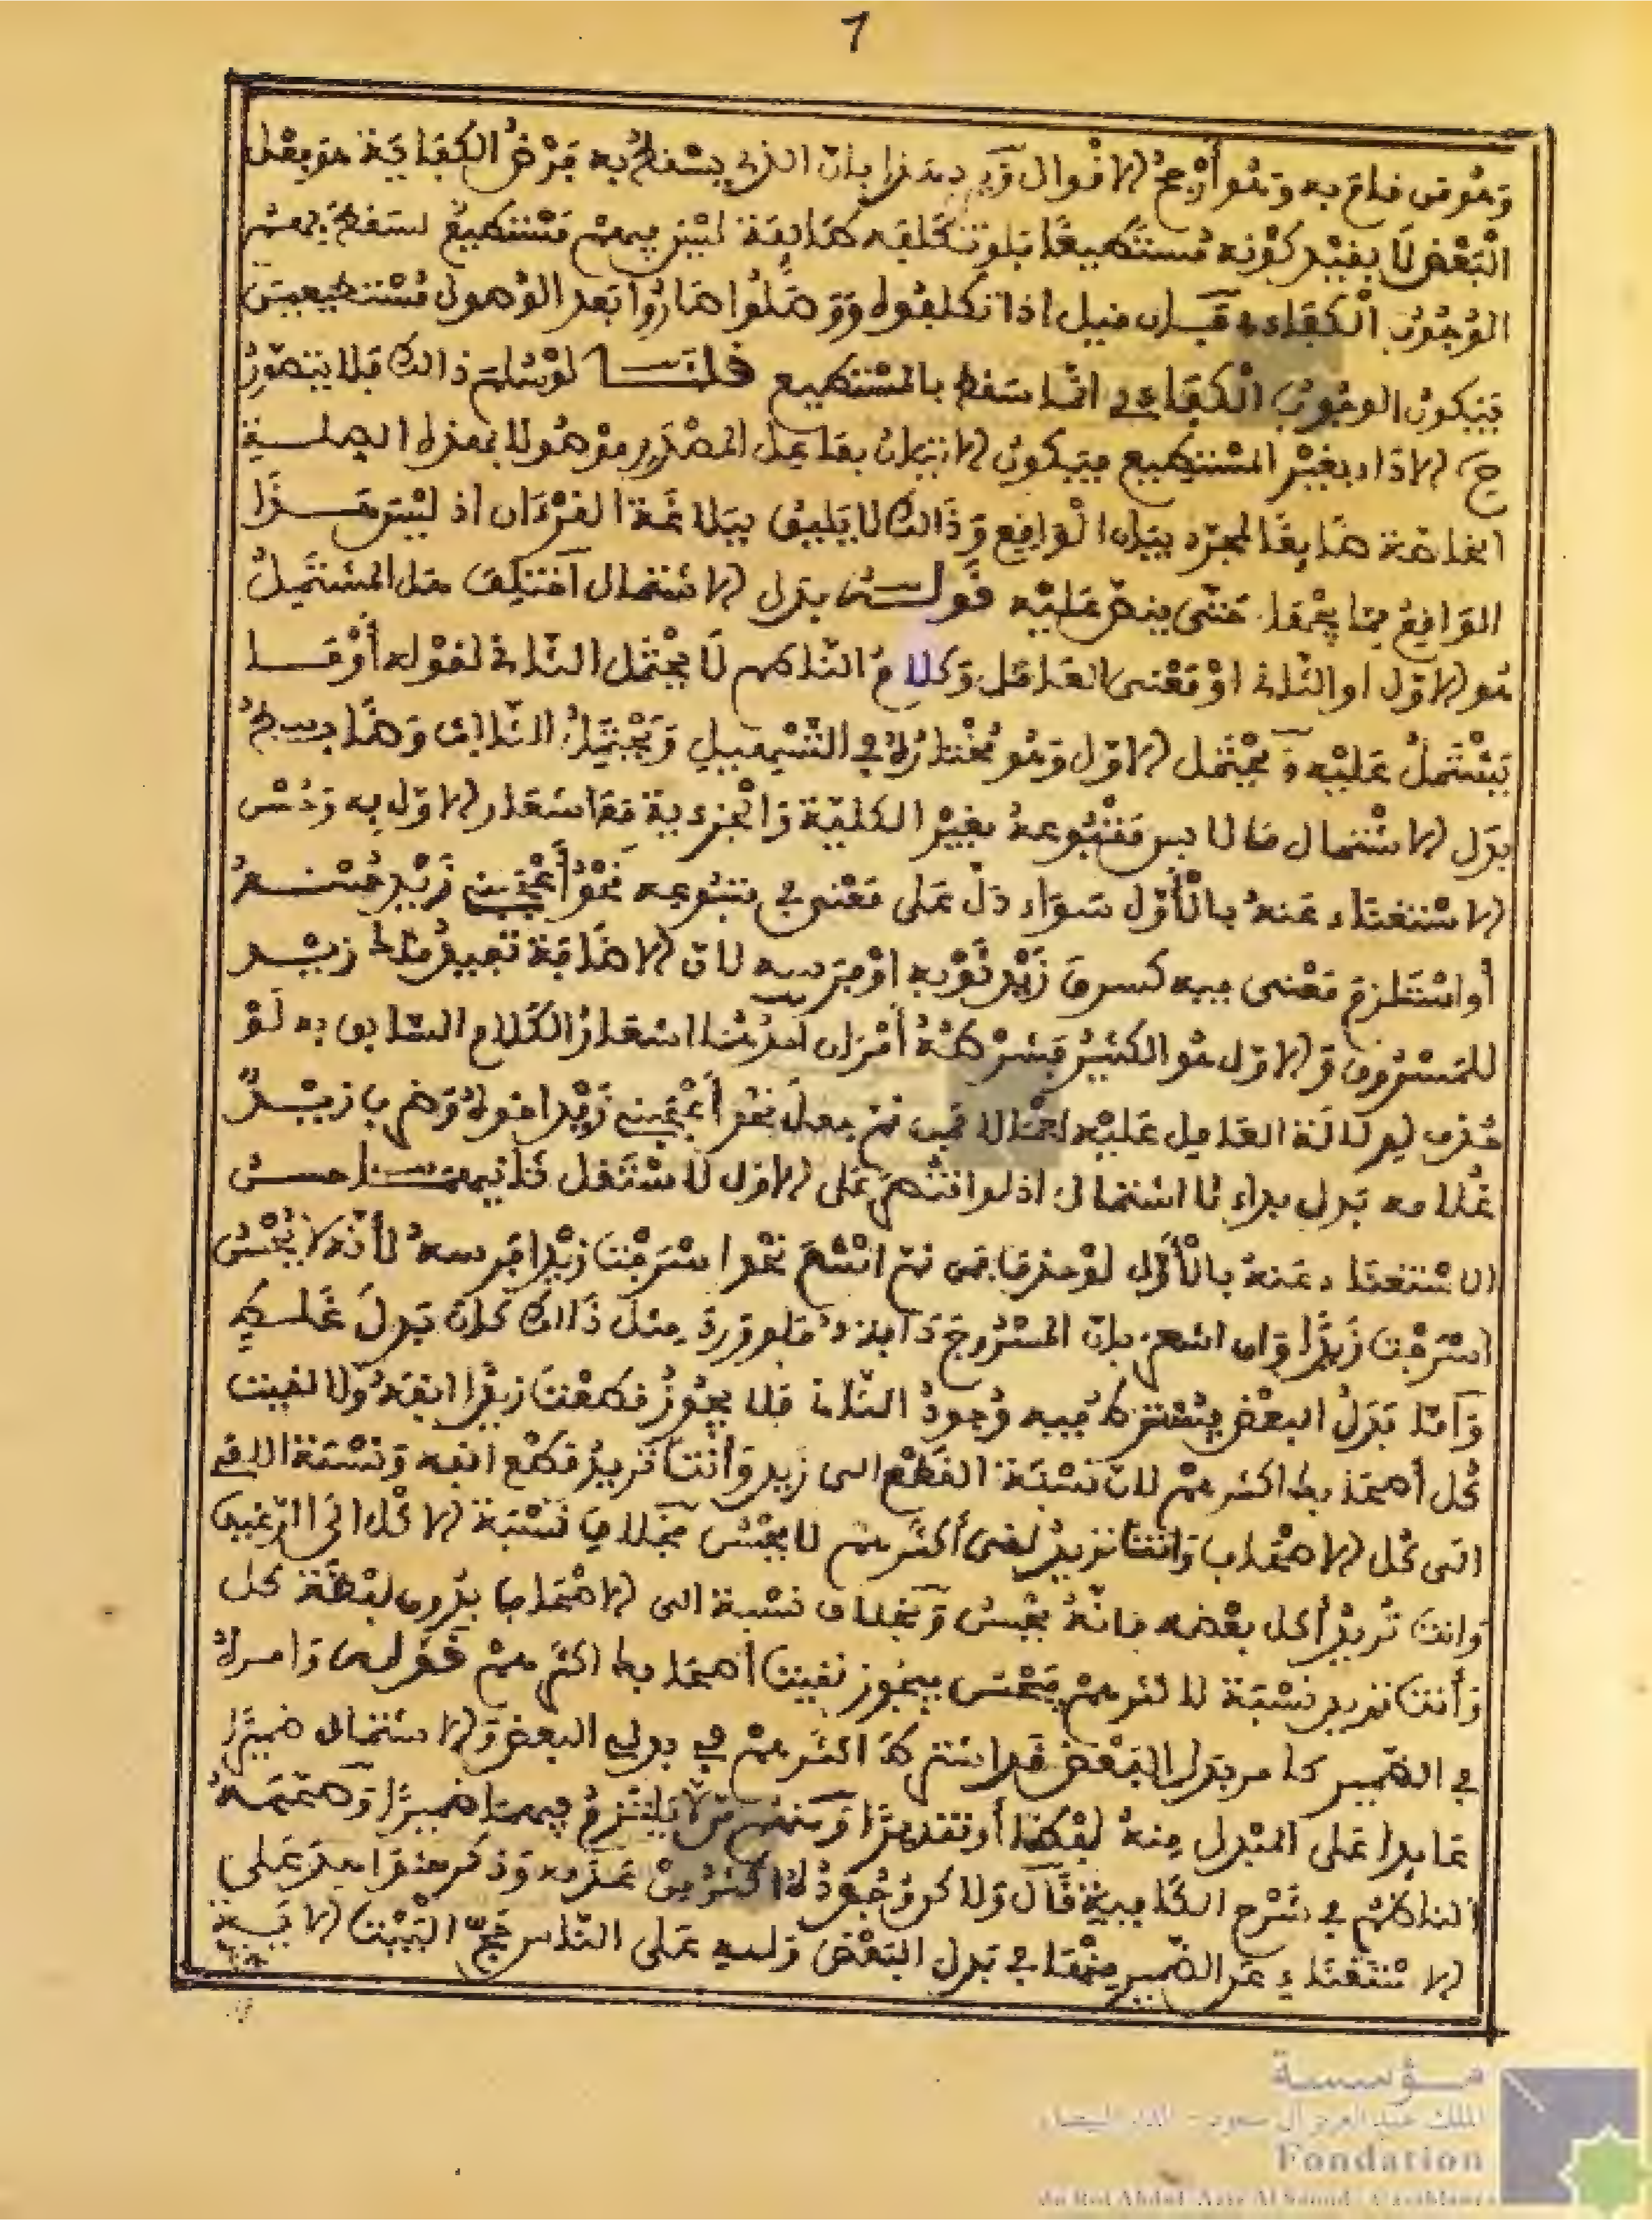 7
وهو من قام به وهو أرجح الاقوال ورد هذا بان الذي يسقط به فرض الكفاية هو فعل
البعض لا بقيد كونه مستطيعا فلو تكلفه طائفة ليس فيهم مستطيع لسقط بهم
الوجوب الكفاءي فان قيل اذا تكلفوه ووصلوا صاروا بعد الوصول مستطيعين
فيكون الوجوب الكفاءي انما سقط بالمستطيع قلنا لو سلم ذالك فلا يتصور
ح الاداء بغير المستطيع فيكون الاتيان بفاعل المصدر موصولا بهذه الصلة
الخاصة ضايعا لمجرد بيان الواقع وذالك لا يليق ببلاغة القرءان اذ ليس هذا
الواقع مما يجهل حتى ينص عليه قوله بدل الاشتمال اختلف هل المشتمل
هو الاول او الثاني او معنى العامل وكلام الناظم لا يحتمل الثاني لقوله أو ما
يشتمل عليه ويحتمل الاول وهو مختاره في التسهيل ويحتمل الثالث وضابط
بدل الاشتمال ما لا بس متبوعه بغير الكلية والجزءية مع اشعار الاول به وحسن
الاستغناء عنه بالأول سواء دل على معنى في متبوعه نحو أعجبني زيد حسنه
أو استلزم معنى فيه كسرق زيد ثوبه او فرسه لان الاضافة تفيد ملك زيد
للمسروق والاول هو الكثير فشرطه أمران احدهما اشعار الكلام السابق به لو
حذف لدلالة العامل عليه اجمالا فمن ثم جعل نحو أعجبني زيد اخوه وضرب زيد
غلامه بدل بداء لا اشتمال اذ لو اقتصر على الاول لاستقل ثانيهما حسن
الاستغناء عنه بالأول لو حذف فمن ثم امتنع نحو اسرجت زيدا فرسه لأنه لا يحسن
اسرجت زيدا وان اشعر بان المسروج دابته فلو ورد مثل ذالك كان بدل غلط
وأما بدل البعض يشترط فيه وجود الثاني فلا يجوز قطعت زيدا انفه ولا لقيت
كل أصحابك اكثرهم لان نسبة القطع الى زيد وأنت تريد قطع انفه ونسبة اللقي
الى كل الاصحاب وانت تريد لقي أكثرهم لا يحسن بخلاف نسبة الاكل الى الرغيف
وانت تريد أكل بعضه فانه يحسن وبخلاف نسبة الى الاصحاب بدون لفظة كل
وأنت تريد نسبة لاكثرهم يحسن فيجوز لقيت أصحابك اكثرهم قوله وامره
في الضمير كامر بدل البعض قد اشترط اكثرهم في بدلي البعض والاشتمال ضميرا
عايدا على المبدل منه لفظا أو تقديرا ومنهم من لا يلتزم فيهما ضميرا وصححه
الناظم في شرح الكافية قال ولا كن وجوده اكثر من عدمه وذكر شواهد على
الاستغناء عن الضمير منها في بدل البعض ولله على الناس حج البيت الاية
مؤسسة
الملك عبد العزيز آل سعود - الدار البيضاء
Fondation
du Roi Abdul-Aziz Al Saoud - Casablanca